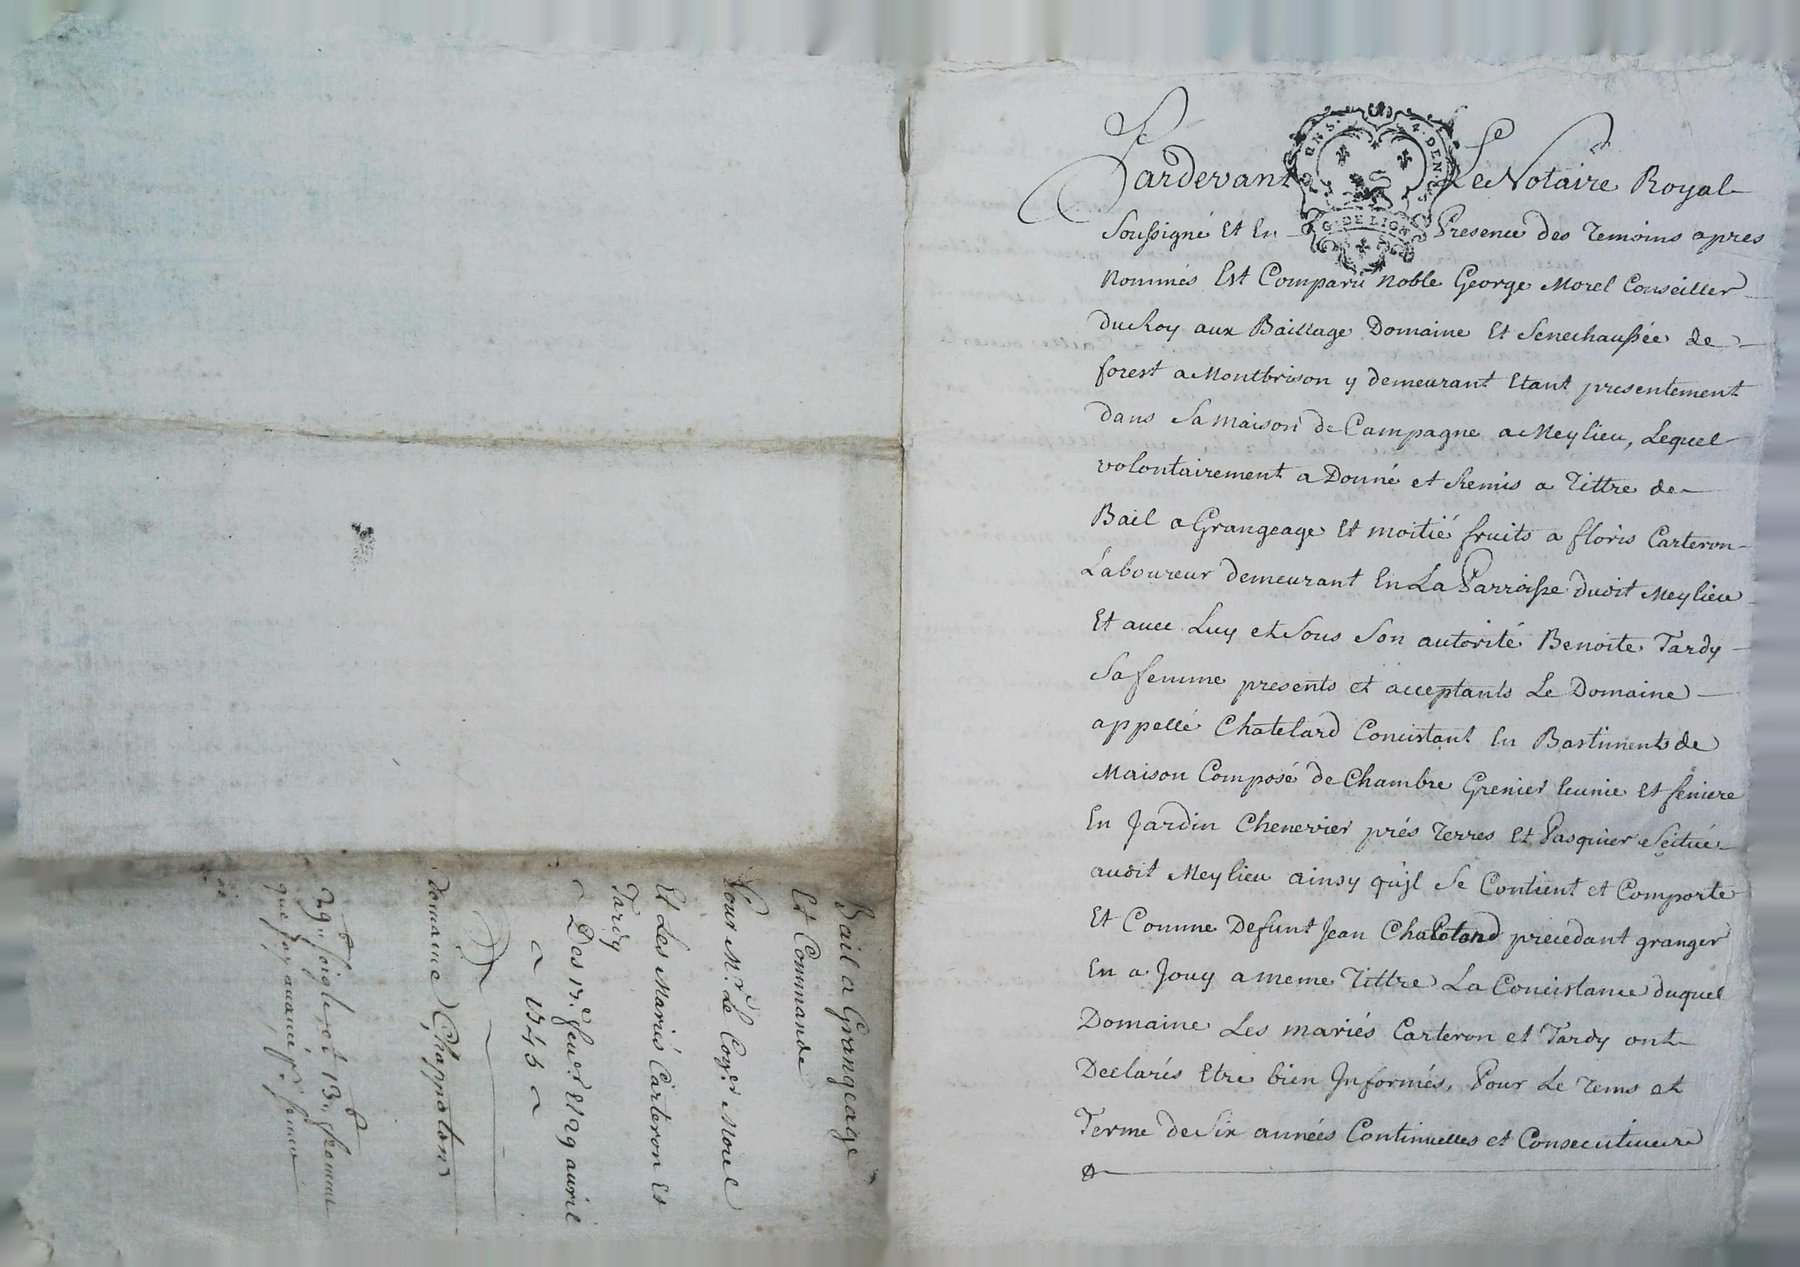 Bail a Grangeage
Et Commande
Pour Mr. Le Coner. Morel
Et Les Mariés Carteron Et
Tardy
Des 13.e feu.er Et 29 auril
1745
Domaine Chappolon
29.b Soigle et 13.b
que j'ay auancé pr. semer
Pardevant Le Notaire Royal
Soussigné Et En Presence des Temoins apres
Nommés Est Comparu Noble George Morel Conseiller
Du Roy aux Baillage Domaine Et Senechaussée de
forest a Montbrison y demeurant Etant presentement
dans Sa maison de Campagne a Meylieu, Lequel
volontairement a Donné et Remis a Tittre de
Bail a Grangeage Et moitié fruits a floris Carteron
Laboureur demeurant En La Parroisse dudit Meylieu
Et auec Luy et Sous Son autorité Benoite Tardy
Sa femme presents et acceptants Le Domaine
appellé Chatelard Concistant En Bastiments de
Maison Composé de Chambre Grenier Ecurie Et feniere
En Jardin Chenevier prés Terres Et Pasquier Scitué
audit Meylieu ainsy qu'jl Se Contient et Comporte
Et Comme Defunt Jean precedant granger
En a Jouy a meme Tittre La Concistance duquel
Domaine Les mariés Carteron et Tardy ont
Declarés Etre bien Jnformés, Pour Le Tems et
Terme de Six années Continuelles et Consecutiues
G. DE LION